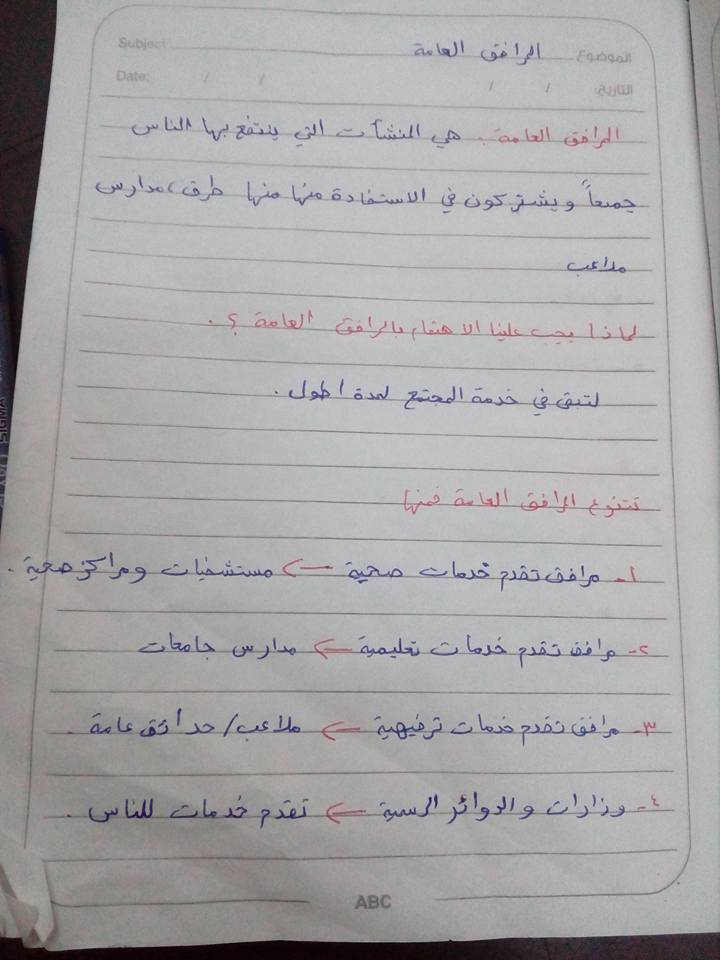 Subject المرافق العامة الموضوع
Date: / / / / التاريخ:
المرافق العامة . هي المنشآت التي ينتفع بها الناس
جميعاً ويشتركون في الاستفادة منها منها طرق، مدارس
ملاعب
لماذا يجب علينا الاهتمام بالمرافق العامة ؟ .
لتبقى في خدمة المجتمع لمدة اطول .
تتنوع المرافق العامة فمنها
١- مرافق تقدم خدمات صحية ← مستشفيات ومراكز صحية .
٢- مرافق تقدم خدمات تعليمية ← مدارس جامعات
٣- مرافق تقدم خدمات ترفيهية ← ملاعب/حدائق عامة .
٤- وزارات والدوائر الرسمية ← تقدم خدمات للناس .
ABC
SIGMA